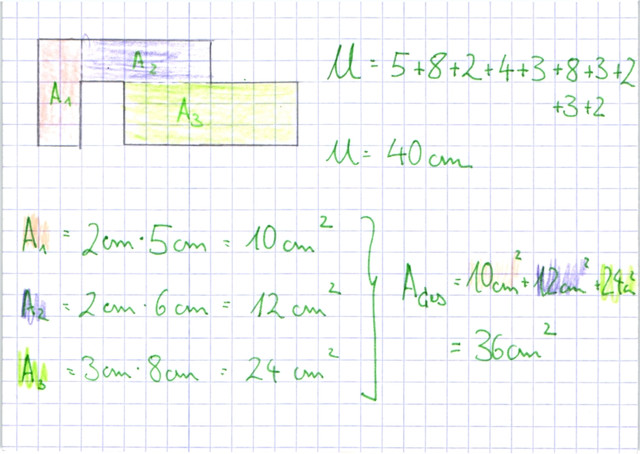 A₁ A₂ A₃
U = 5+8+2+4+3+8+3+2
+3+2
U = 40cm
A₁ = 2cm · 5cm = 10cm²
A₂ = 2cm · 6cm = 12cm²
A₃ = 3cm · 8cm = 24 cm²
A_Ges = 10cm² + 12cm² + 24c²
= 36cm²